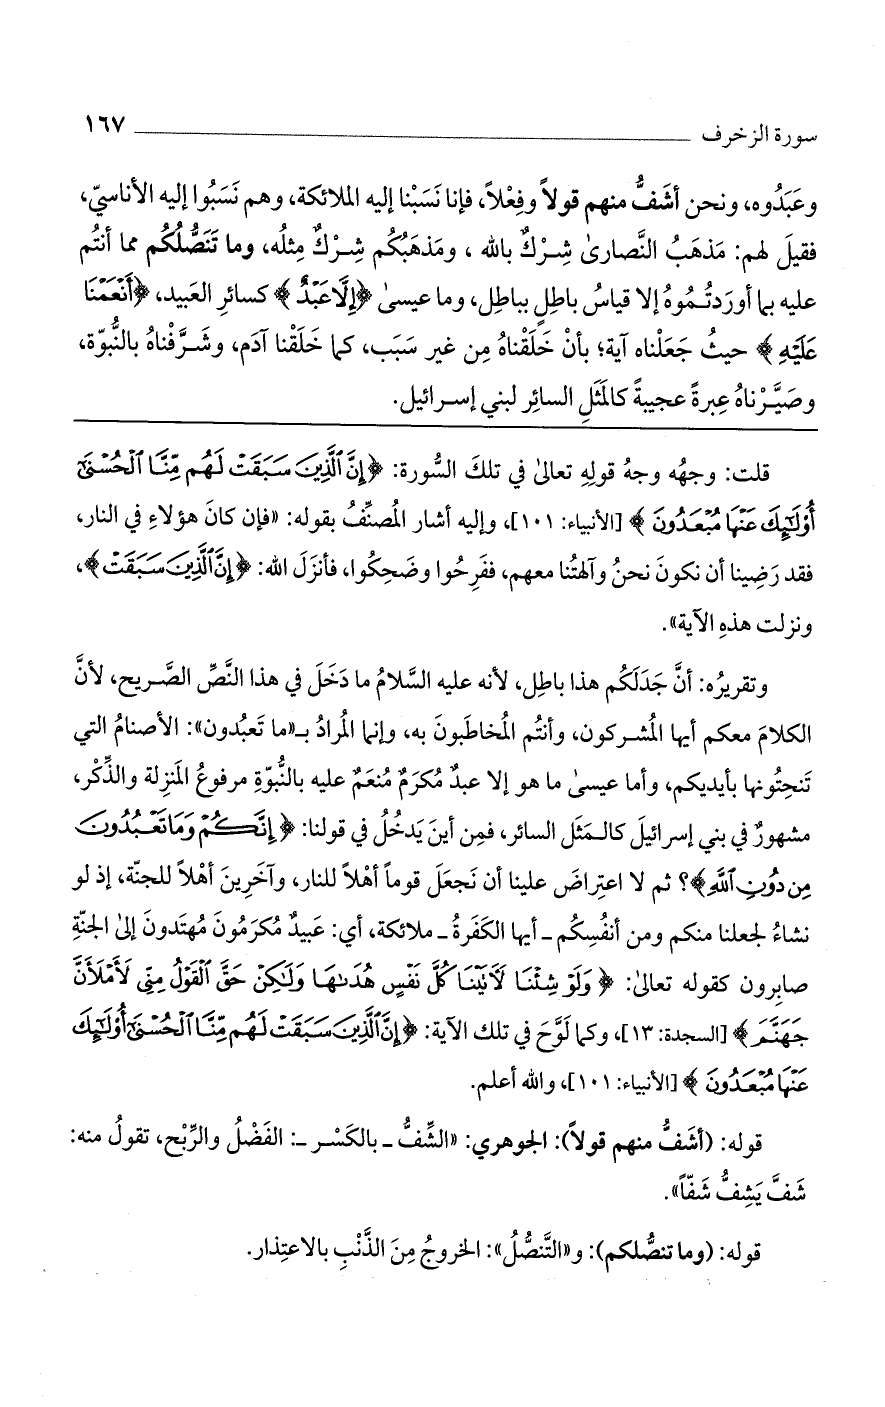 سورة الزخرف ١٦٧
وعَبَدُوه، ونحن أشَفُّ منهم قولاً وفِعْلاً، فإنا نَسَبْنا إليه الملائكة، وهم نَسَبُوا إليه الأناسيّ،
فقيلَ لهم: مَذهَبُ النَّصارىٰ شِرْكٌ بالله ، ومَذهَبُكُم شِرْكٌ مِثلُه، وما تَنَصُّلُكُم مما أنتُم
عليه بما أورَدتُـمُوهُ إلا قياسُ باطلٍ بباطِل، وما عيسىٰ ﴿إِلَّا عَبْدٌ﴾ كسائرِ العَبيد، ﴿أَنْعَمْنَا
عَلَيْهِ﴾ حيثُ جَعَلْناه آية؛ بأنْ خَلَقْناهُ مِن غير سَبَب، كما خَلَقْنا آدَم، وشَـرَّفْناهُ بالنُّبوّة،
وصَيَّـرْناهُ عِبرةً عجيبةً كالمَثَلِ السائرِ لبني إسـرائيل.
قلت: وجهُه وجهُ قولِهِ تعالىٰ في تلكَ السُّورة: ﴿إِنَّ ٱلَّذِينَ سَبَقَتْ لَهُم مِّنَّا ٱلْحُسْنَىٰٓ
أُوْلَٰٓئِكَ عَنْهَا مُبْعَدُونَ﴾ [الأنبياء: ١٠١]، وإليه أشار المُصنِّفُ بقوله: «فإن كانَ هؤلاءِ في النار،
فقد رَضِينا أن نكونَ نحنُ وآلهتُنا معهم، ففَرِحُوا وضَحِكُوا، فأنزَلَ الله: ﴿إِنَّ ٱلَّذِينَ سَبَقَتْ﴾،
ونزلت هذهِ الآية».
وتقريرُه: أنَّ جَدَلَكُم هذا باطِل، لأنه عليه السَّلامُ ما دَخَلَ في هذا النَّصِّ الصَّـريح، لأنَّ
الكلامَ معكم أيها المُشـركون، وأنتُم المُخاطَبونَ به، وإنما المُرادُ بـ«ما تَعبُدون»: الأصنامُ التي
تَنحِتُونها بأيديكم، وأما عيسىٰ ما هو إلا عبدٌ مُكرَمٌ مُنعَمٌ عليه بالنُّبوّةِ مرفوعُ المَنزِلة والذِّكْر،
مشهورٌ في بني إسرائيلَ كالـمَثَل السائر، فمِن أينَ يَدخُلُ في قولنا: ﴿إِنَّكُمْ وَمَا تَعْبُدُونَ
مِن دُونِ ٱللَّهِ﴾؟ ثم لا اعتِراضَ علينا أن نَجعَلَ قوماً أهْلاً للنار، وآخَرِينَ أهْلاً للجنّة، إذ لو
نشاءُ لجعلنا منكم ومن أنفُسِكُم - أيها الكَفَرةُ - ملائكة، أي: عَبيدٌ مُكرَمُونَ مُهتَدونَ إلىٰ الجنّةِ
صابِرون كقوله تعالىٰ: ﴿وَلَوْ شِئْنَا لَأٓتَيْنَا كُلَّ نَفْسٍ هُدَىٰهَا وَلَٰكِنْ حَقَّ ٱلْقَوْلُ مِنِّى لَأَمْلَأَنَّ
جَهَنَّمَ﴾ [السجدة: ١٣]، وكما لَوَّحَ في تلك الآية: ﴿إِنَّ ٱلَّذِينَ سَبَقَتْ لَهُم مِّنَّا ٱلْحُسْنَىٰٓ أُوْلَٰٓئِكَ
عَنْهَا مُبْعَدُونَ﴾ [الأنبياء: ١٠١]، والله أعلم.
قوله: (أشَفُّ منهم قولاً): الجوهري: «الشِّفُّ - بالكَسْـر -: الفَضْلُ والرِّبْح، تقولُ منه:
شَفَّ يَشِفُّ شَفّاً».
قوله: (وما تنصُّلكم): و«التَّنصُّلُ»: الخروجُ مِنَ الذَّنْبِ بالاعتِذار.